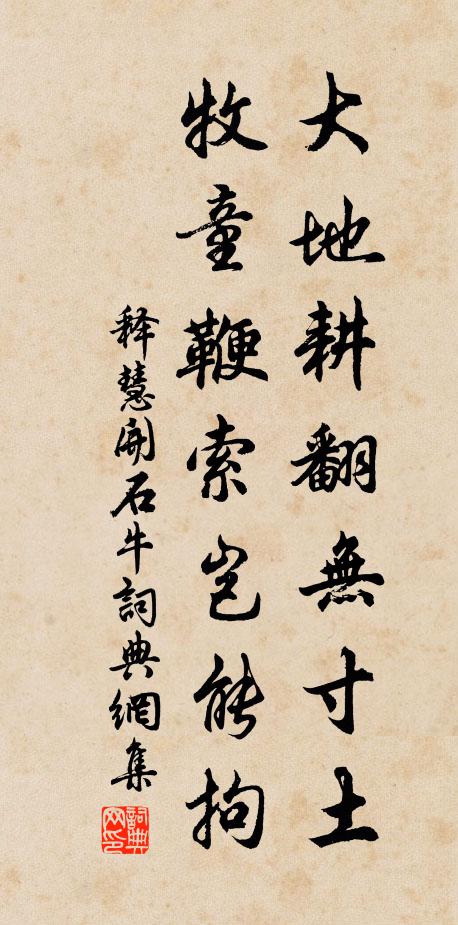 大地耕翻無寸土
牧童鞭索豈能拘
释慧開石牛詞典網集
詞典网印